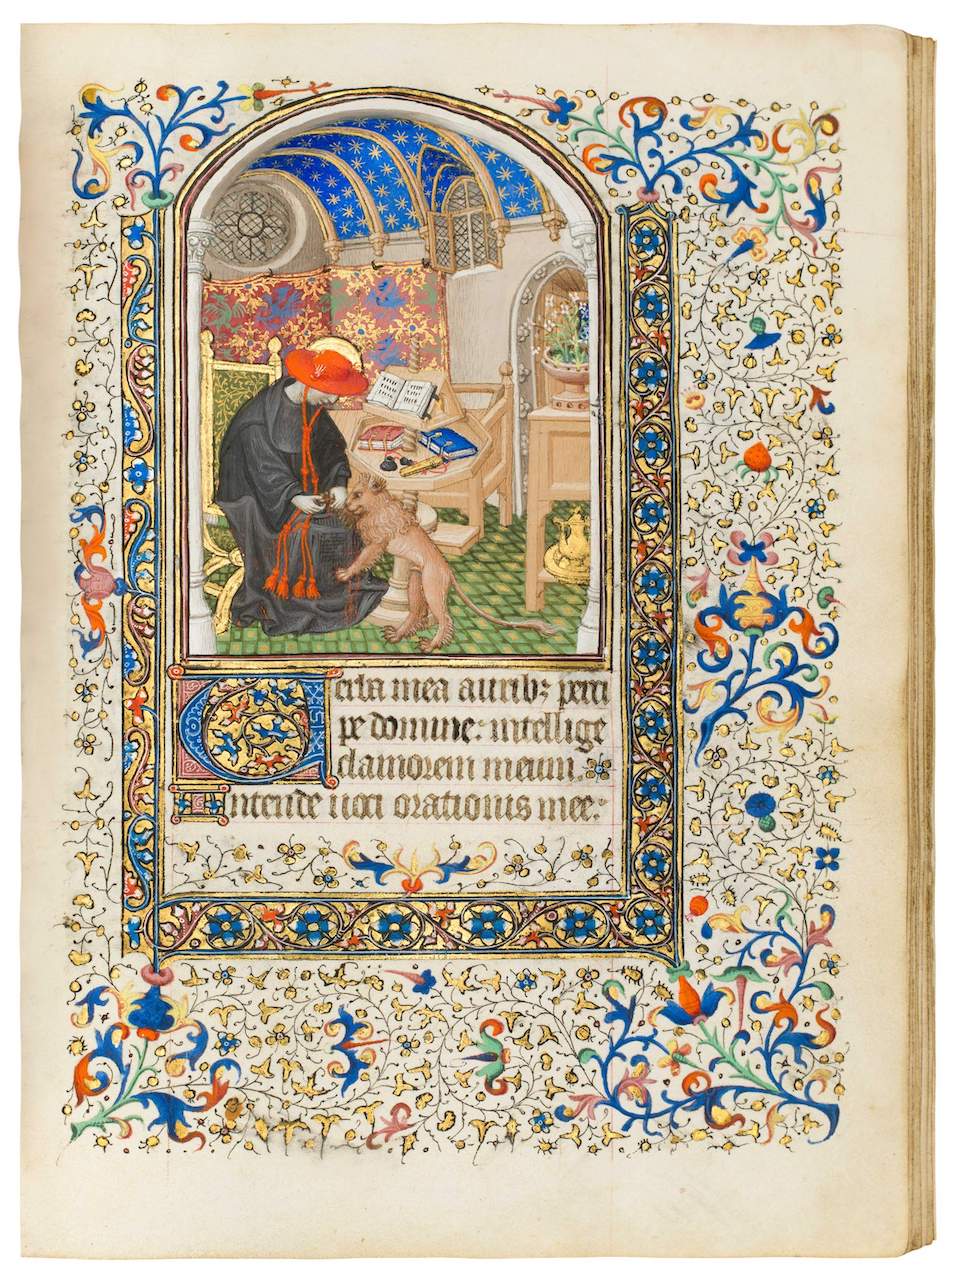 Uerba mea auribꝫ perci
pe domine: intellige
clamorem meum.
Intende uoci orationis mee: